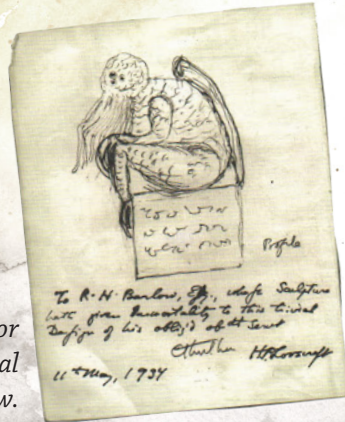 Profile
To R. H. Barlow, Esq., whose Sculpture
hath given Immortality to this trivial
Design of his oblig'd obt Servt
Cthulhu HPLovecraft
11th May, 1934
or
al
w.